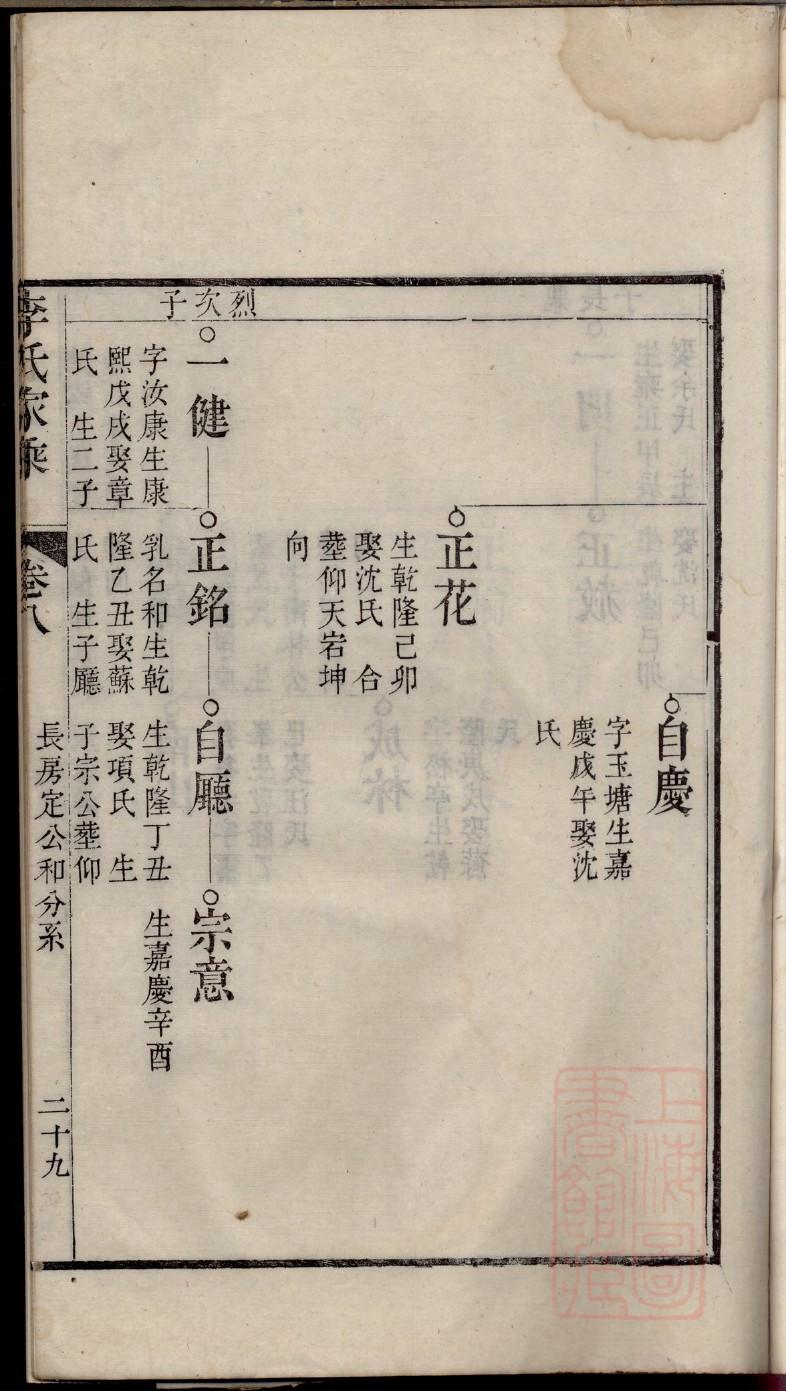 自慶
字玉塘生嘉
慶戊午娶沈
氏
正花
生乾隆己卯
娶沈氏　合
塟仰天宕坤
向
烈次子
一健
字汝康生康
熙戊戌娶章
氏　生二子
正銘
乳名和生乾
隆乙丑娶蘇
氏　生子廳
自廳
生乾隆丁丑
娶項氏　生
子宗公塟仰
宗意
生嘉慶辛酉
李氏家乘
卷八
長房定公和分系
二十九
上海圖
書館藏